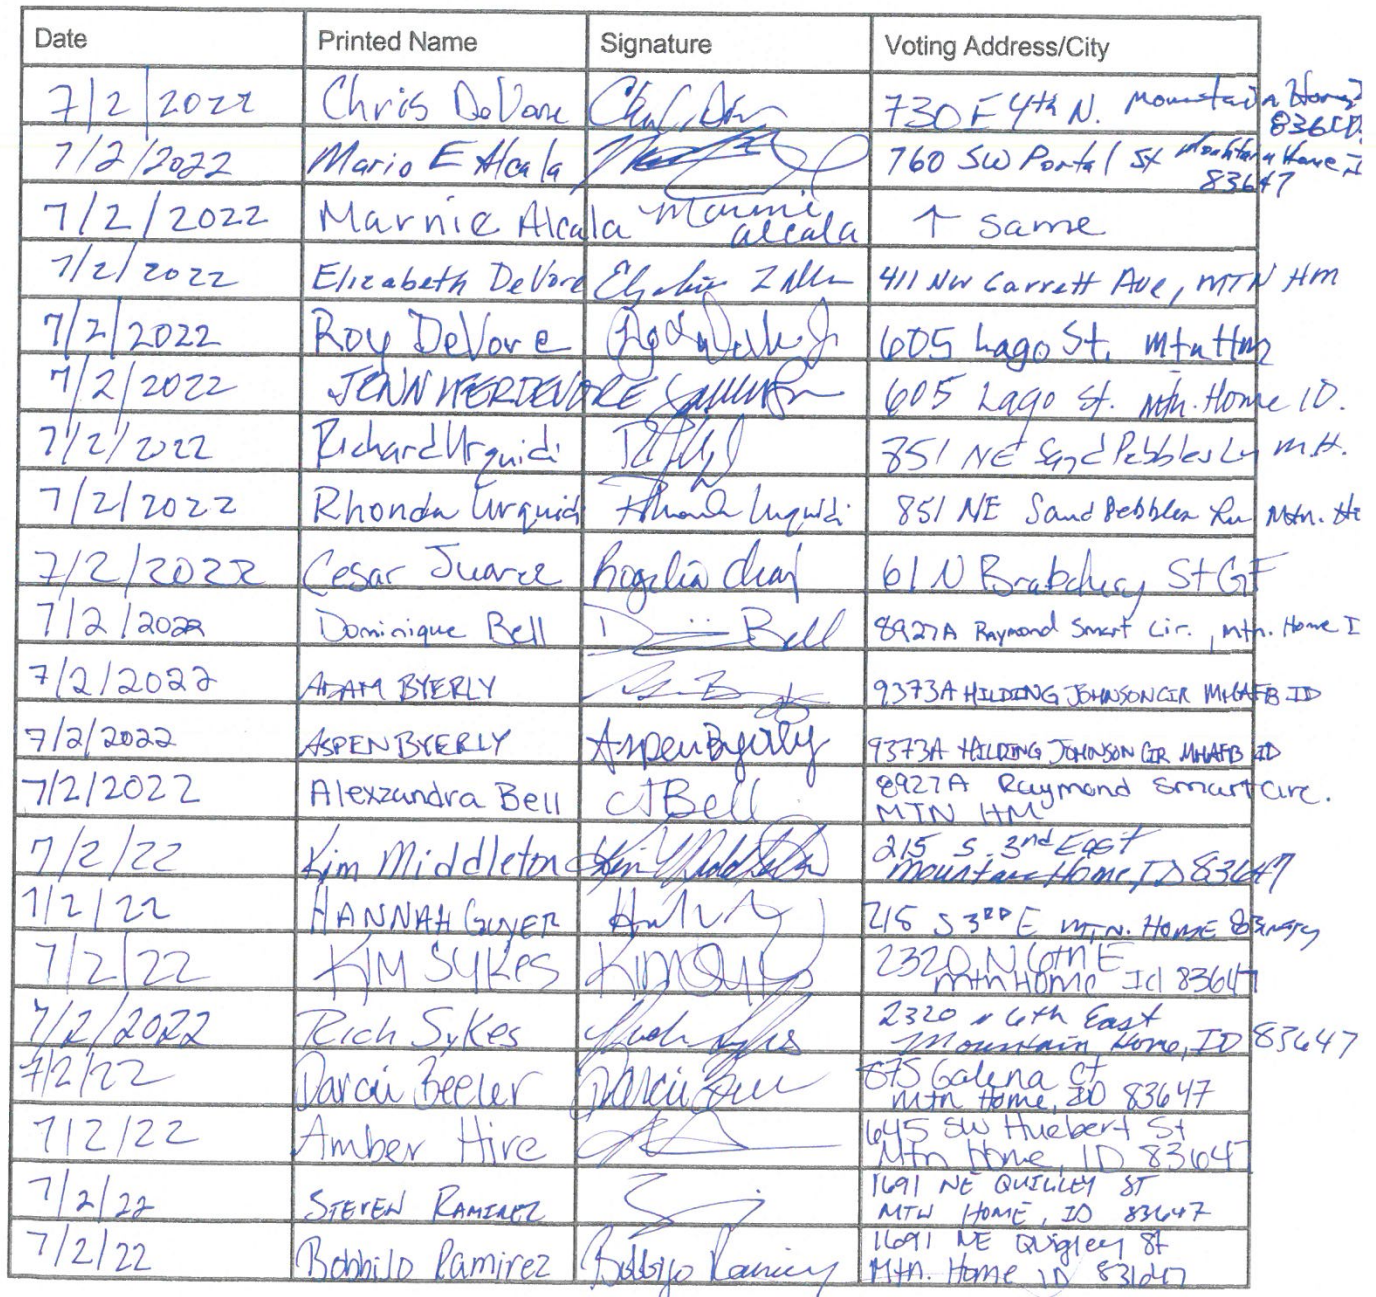 Date Printed Name Signature Voting Address/City
7/2/2022 Chris DeVore 730 E 4th N. Mountain Home
836 ID.
7/2/2022 Mario E Alcala 760 SW Portal St Mountain Home I
83647
7/2/2022 Marnie Alcala Marnie alcala ↑ same
7/2/2022 Elizabeth DeVore 411 NW Garrett Ave, MTN HM
7/2/2022 Roy DeVore 605 Lago St. Mtn Hm
7/2/2022 JENNIFER DEVORE 605 Lago St. Mtn. Home ID.
7/2/2022 Richard Urquidi 851 NE Sand Pebbles Ln M.H.
7/2/2022 Rhonda Urquidi Rhonda Urquidi 851 NE Sand Pebbles Ln Mtn. H
7/2/2022 Cesar Juarez Rogelia 61 N St GF
7/2/2022 Dominique Bell Bell 8927A Raymond Smart Cir., Mtn. Home I
7/2/2022 ADAM BYERLY 9373A HILDING JOHNSON CIR MHAFB ID
7/2/2022 ASPEN BYERLY Aspen Byerly 9373A HILDING JOHNSON CIR MHAFB ID
7/2/2022 Alexzandra Bell AJBell 8927A Raymond Smart Circ.
MTN HM
7/2/22 Kim Middleton Kim Middleton 215 S. 3rd East
Mountain Home, ID 83647
7/2/22 HANNAH GUYER 215 S 3RD E MTN. HOME 83647
7/2/22 KIM SYKES 2320 N 6th E
Mtn Home Id 83647
7/2/2022 Rich Sykes 2320 N 6th East
Mountain Home, ID 83647
7/2/22 Darcii Beeler Darcii 875 Galena Ct
Mtn Home, ID 83647
7/2/22 Amber Hire 645 SW Huebert St
Mtn Home, ID 83647
7/2/22 STEVEN RAMIREZ 1691 NE QUIGLEY ST
MTN HOME, ID 83647
7/2/22 BobbiJo Ramirez BobbiJo Ramirez 1691 NE Quigley St
Mtn. Home ID 83647